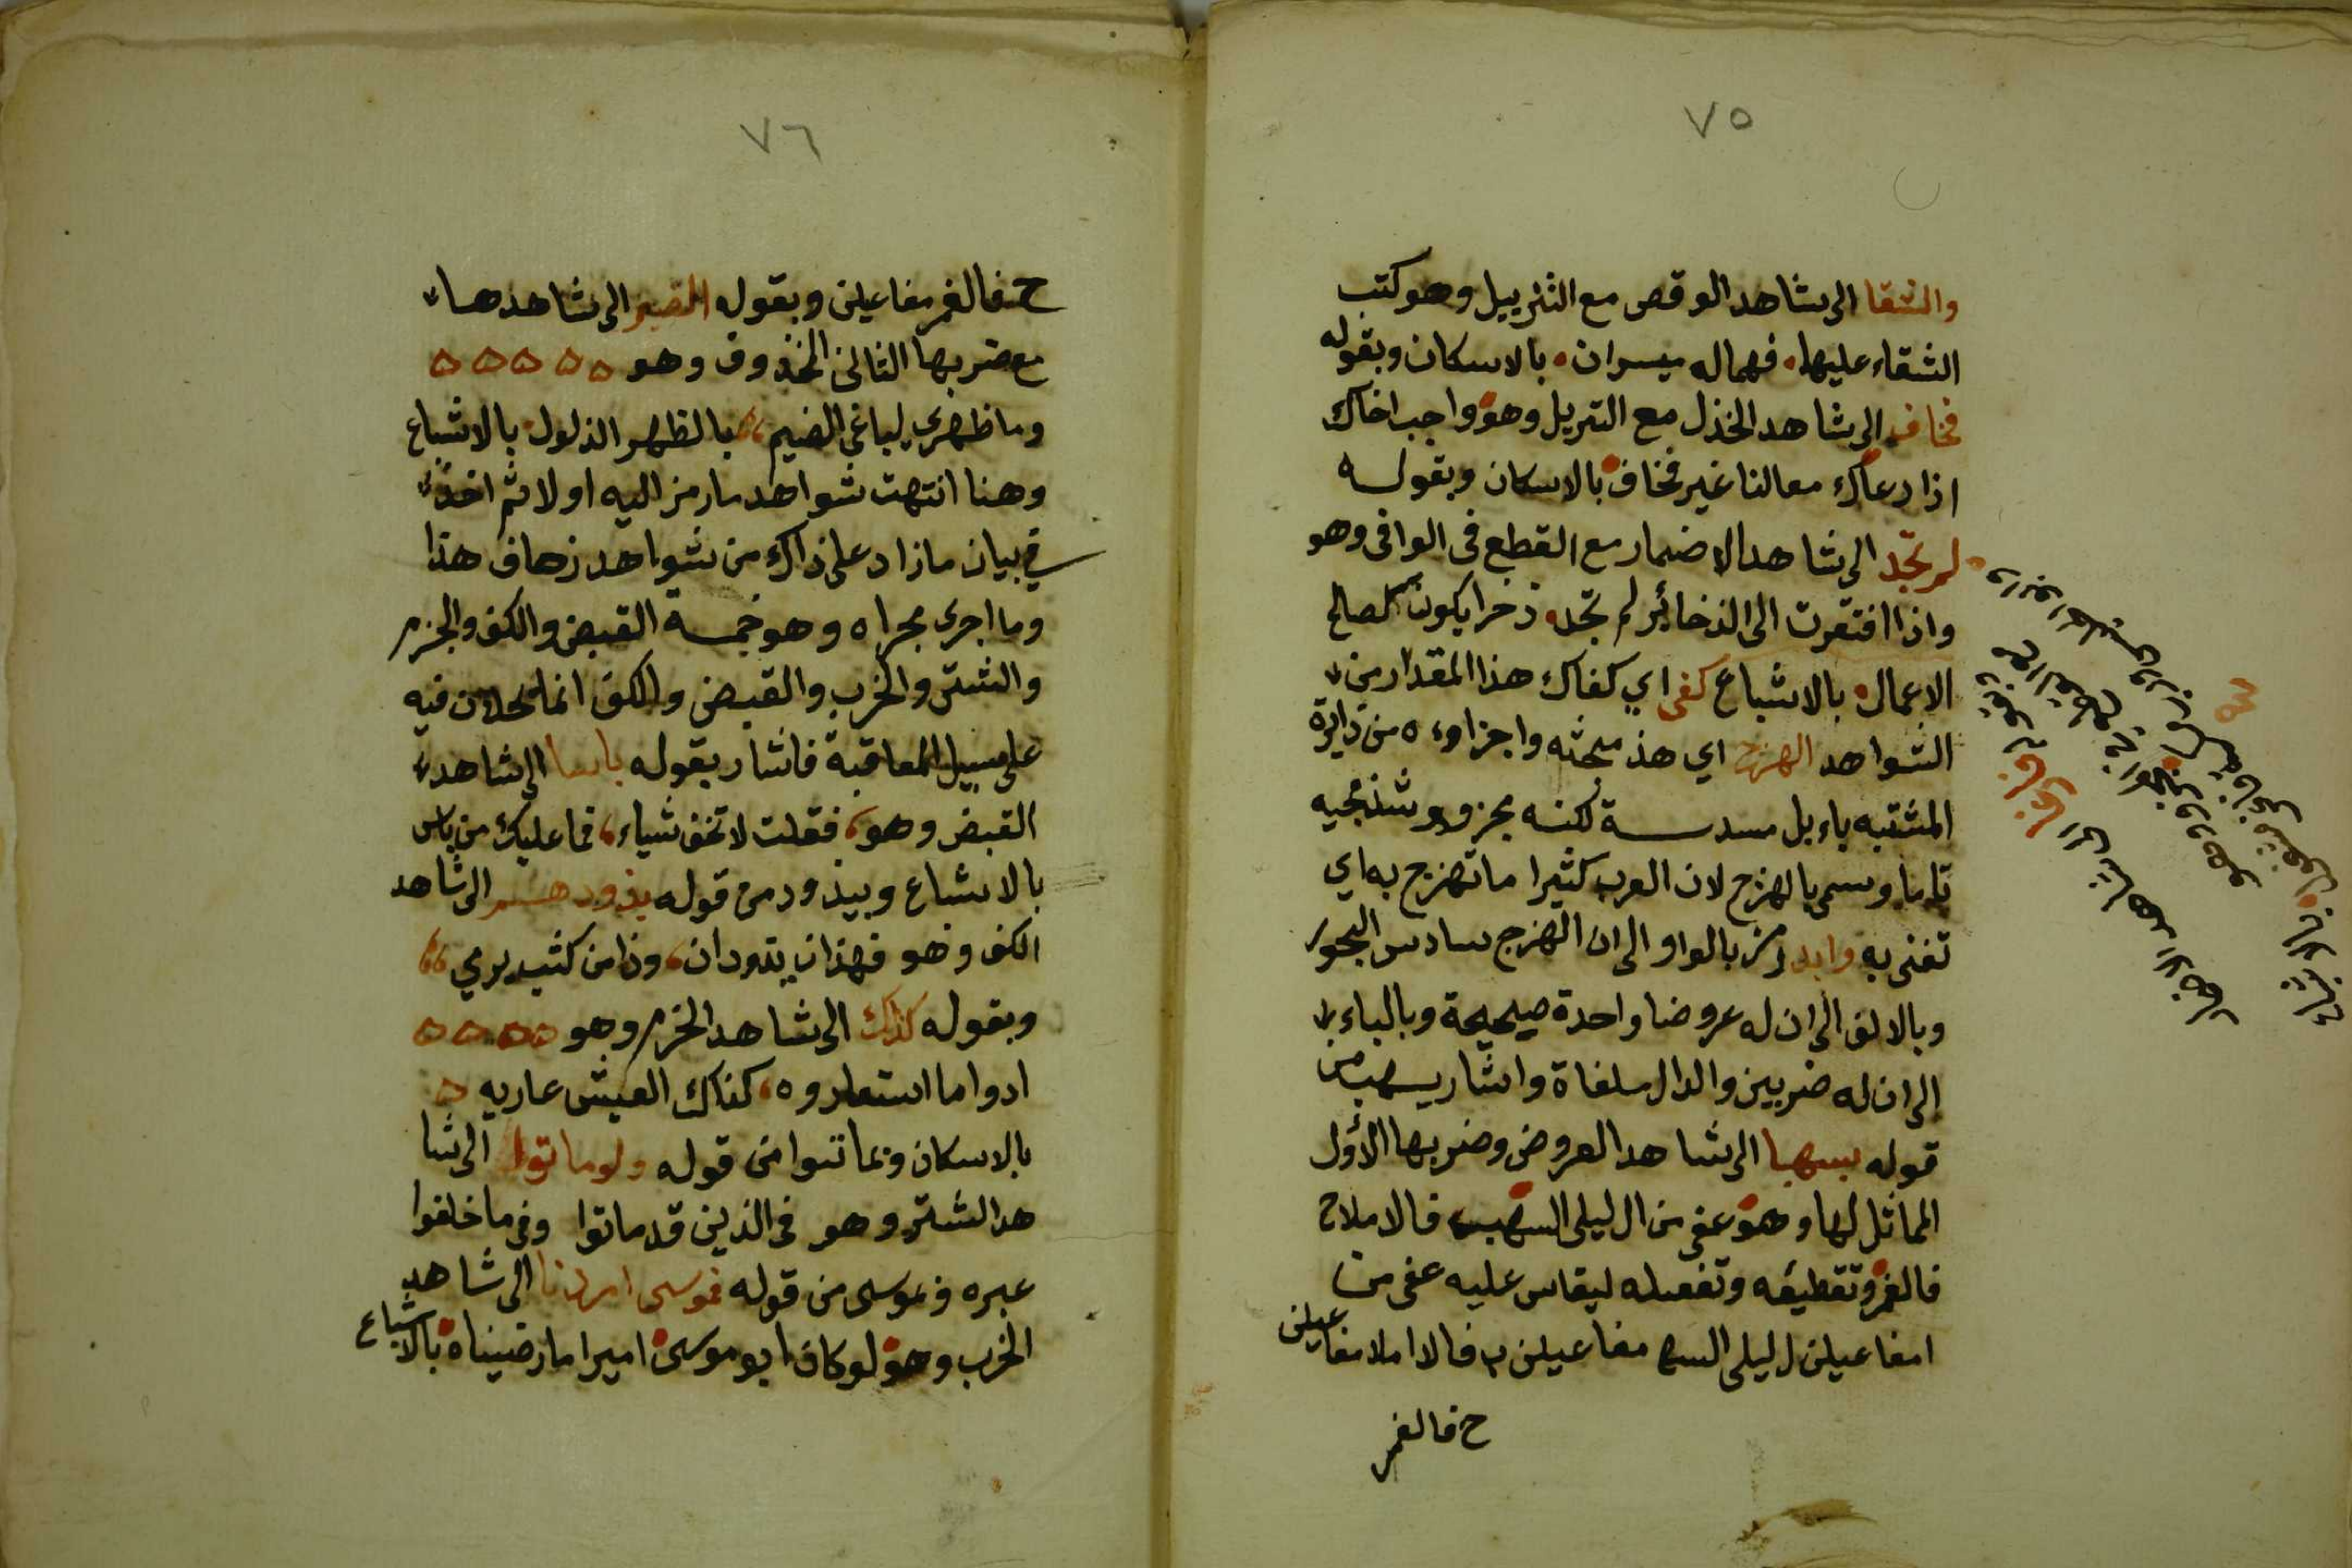 ٧٥
والشقا الى شاهد الوقص مع الترييل وهو كتب
الشقاء عليهما فهما له ميسران بالاسكان وبقوله
فخاف الى شاهد الخذل مع التريل وهو واجب اخاك
اذا دعاك معالنا غير مخاف بالاسكان وبقوله
لم تجد الى شاهد الاضمار مع القطع فى الوافى وهو
واذا افتقرت الى الذخائر لم تجد ذخرا يكون كصالح
الاعمال بالاشباع كفى اي كفاك هذا المقدار من
الشواهد الهزج اي هذ مبحثه واجزاوءه من دايرة
المشتبه باء بل مسدسة لكنه مجزوء وشذ مجيه
تاما وسمى بالهزج لان العرب كثيرا ما تهزج به اي
تغنى به وابد رمز بالواو الى ان الهزج سادس البحور
وبالالف الى ان له عروضا واحدة صحيحة وبالباء
الى ان له ضربين والدال ملغاة واشار بسهب من
قوله بسهبا الى شاهد العروض وضربها الأول
المماثل لها وهو عفى من ال ليلى السهب فالاملاح
فالغمر وتقطيعه وتفعيله ليقاس عليه عفى من
امفاعيلن ل ليلى السه مفاعيلن ب فالا املا مفاعيلن
ح فالغمر
٧٦
ح فالغمر مفاعيلن وبقوله الى شاهدها
مع ضربها الثانى المحذوف وهو
وما ظهري لباغى الضيم بالظهر الذلول بالاشباع
وهنا انتهت شواهد ما رمز اليه اولا ثم اخذ
في بيان ما زاد على ذاك من شواهد زحاف هذا
وما اجرى مجراه وهو خمسة القبض والكف والخرم
والشتر والخرب والقبض والكف انما يحلان فيه
على سبيل المعاقبة فاشار بقوله باسا الى شاهد
القبض وهو فقلت لا تخف شياء فما عليك من باس
بالاشباع وبيذود من قوله يذود الى شاهد
الكف وهو فهذان يذودان وذا من كثب يرمي
وبقوله كذاك الى شاهد الخرم وهو
ادوا ما استعاروه كذاك العيش عاريه
بالاسكان وبماتوا من قوله ولو ماتوا الى شا
هد الشتر وهو فى الذين قد ماتوا وفى ما خلفوا
عبره وبموسى من قوله فموسى امرنا الى شاهد
الخرب وهو لو كان ابو موسى اميرا ما رضيناه بالاشباع